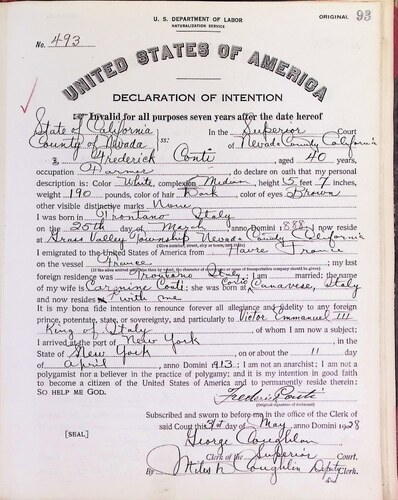 U. S. DEPARTMENT OF LABOR
NATURALIZATION SERVICE
ORIGINAL 93
No. 493
UNITED STATES OF AMERICA
DECLARATION OF INTENTION
Invalid for all purposes seven years after the date hereof
State of California
County of Nevada ss: In the Superior Court
of Nevada County California
I, Frederick Conti, aged 40 years,
occupation Farmer, do declare on oath that my personal
description is: Color White, complexion Medium, height 5 feet 7 inches,
weight 190 pounds, color of hair Dark, color of eyes Brown
other visible distinctive marks None
I was born in Trontano Italy
on the 25th day of March, anno Domini 1888; I now reside
at Grass Valley Township Nevada County California
I emigrated to the United States of America from Havre France
on the vessel France; my last
foreign residence was Trontano Italy; I am married; the name
of my wife is Carmine Conti; she was born at Canavese, Italy
and now resides with me
It is my bona fide intention to renounce forever all allegiance and fidelity to any foreign
prince, potentate, state, or sovereignty, and particularly to Victor Emmanuel III
King of Italy, of whom I am now a subject;
I arrived at the port of New York, in the
State of New York, on or about the 11 day
of April, anno Domini 1913; I am not an anarchist; I am not a
polygamist nor a believer in the practice of polygamy; and it is my intention in good faith
to become a citizen of the United States of America and to permanently reside therein:
SO HELP ME GOD.
Subscribed and sworn to before me in the office of the Clerk of
said Court this day of May, anno Domini 1928
[SEAL]
George Coughlan
Clerk of the Superior Court.
By Miles N Coughlin Deputy Clerk.